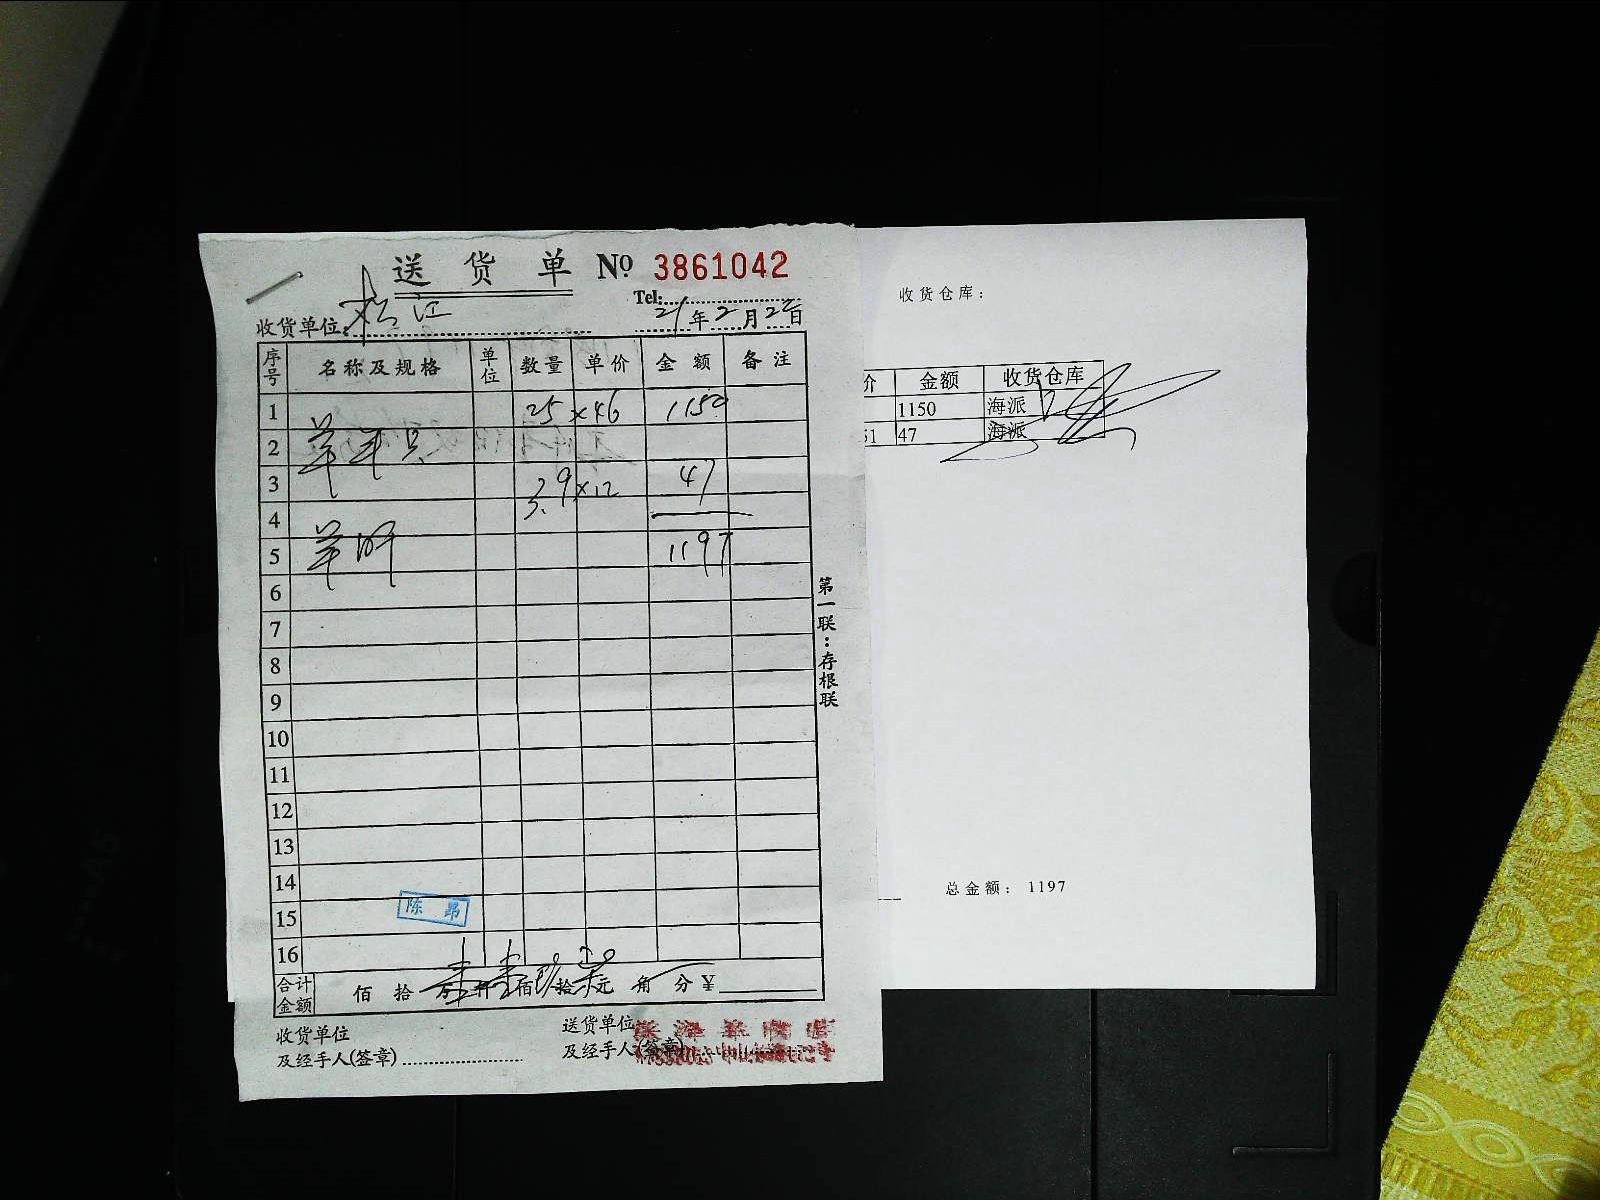 送货单 No 3861042
Tel:
收货单位: 松江 21年2月22日
序号 名称及规格 单位 数量 单价 金额 备注
1 25 × 46 1150
2 羊
3 3.9 × 12 47
4
5 羊肝 1197
6
7
8
9
10
11
12
13
14
15 陈昂
16
合计金额 佰 拾 万 仟 佰 拾 元 角 分 ¥
收货单位
及经手人(签章)
送货单位
及经手人(签章)
第一联:存根联
收货仓库:
价 金额 收货仓库
1150 海派
51 47 海派
总金额: 1197